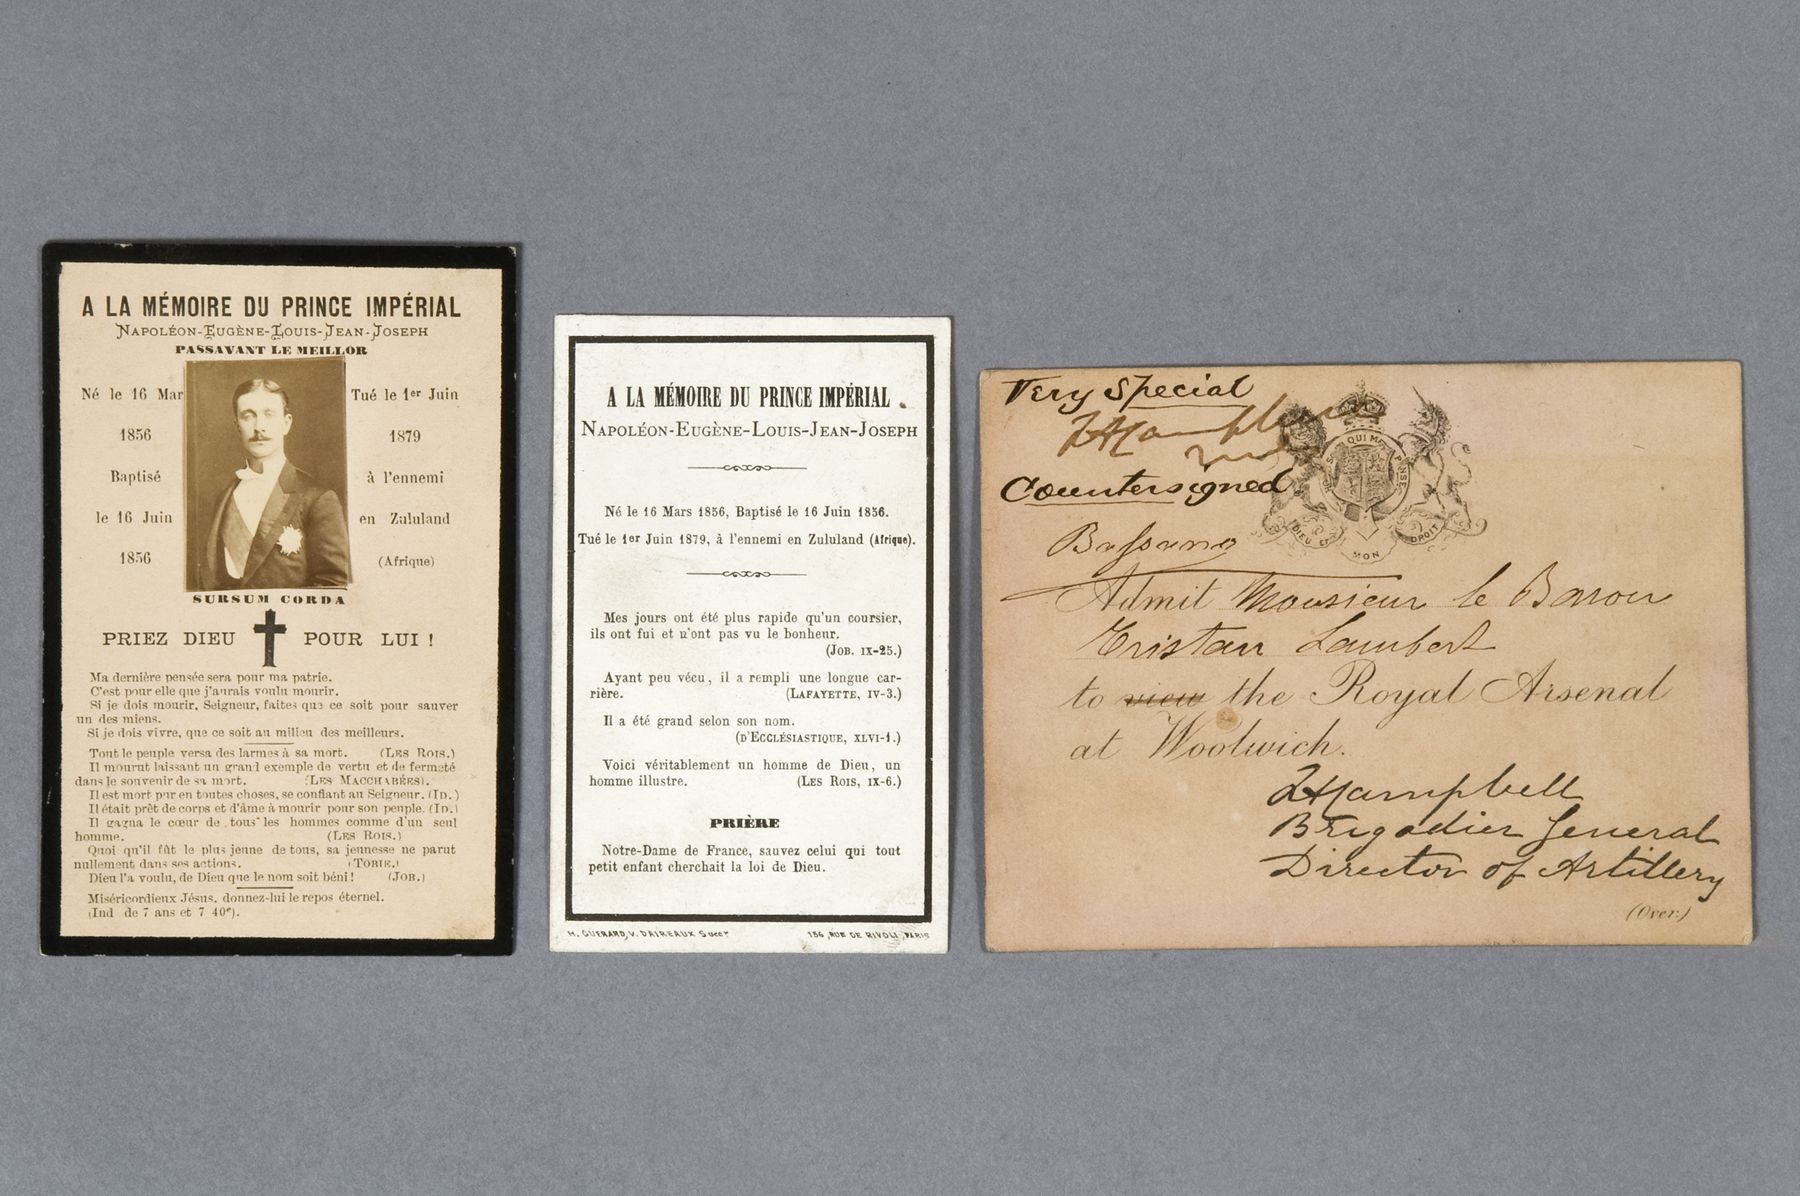 A LA MÉMOIRE DU PRINCE IMPÉRIAL
NAPOLÉON-EUGÈNE-LOUIS-JEAN-JOSEPH
PASSAVANT LE MEILLOR
Né le 16 Mar
1856
Baptisé
le 16 Juin
1856
Tué le 1er Juin
1879
à l'ennemi
en Zululand
(Afrique)
SURSUM CORDA
PRIEZ DIEU POUR LUI !
Ma dernière pensée sera pour ma patrie.
C'est pour elle que j'aurais voulu mourir.
Si je dois mourir, Seigneur, faites que ce soit pour sauver
un des miens.
Si je dois vivre, que ce soit au milieu des meilleurs.
Tout le peuple versa des larmes à sa mort. (LES ROIS.)
Il mourut laissant un grand exemple de vertu et de fermeté
dans le souvenir de sa mort. (LES MACCHABÉES).
Il est mort pur en toutes choses, se confiant au Seigneur. (ID.)
Il était prêt de corps et d'âme à mourir pour son peuple. (ID.)
Il gagna le cœur de tous les hommes comme d'un seul
homme. (LES ROIS.)
Quoi qu'il fût le plus jeune de tous, sa jeunesse ne parut
nullement dans ses actions. (TOBIE.)
Dieu l'a voulu, de Dieu que le nom soit béni ! (JOB.)
Miséricordieux Jésus, donnez-lui le repos éternel.
(Ind de 7 ans et 7 40e).
A LA MÉMOIRE DU PRINCE IMPÉRIAL
NAPOLÉON-EUGÈNE-LOUIS-JEAN-JOSEPH
Né le 16 Mars 1856, Baptisé le 16 Juin 1856.
Tué le 1er Juin 1879, à l'ennemi en Zululand (Afrique).
Mes jours ont été plus rapide qu'un coursier,
ils ont fui et n'ont pas vu le bonheur.
(JOB. IX-25.)
Ayant peu vécu, il a rempli une longue car-
rière. (LAFAYETTE, IV-3.)
Il a été grand selon son nom.
(D'ECCLÉSIASTIQUE, XLVI-1.)
Voici véritablement un homme de Dieu, un
homme illustre. (LES ROIS, IX-6.)
PRIÈRE
Notre-Dame de France, sauvez celui qui tout
petit enfant cherchait la loi de Dieu.
H. GUÉRARD, V. DAIREAUX Succr 156, RUE DE RIVOLI, PARIS
Very Special
Countersigned
Bassano
QUI MAL
PENSE
DIEU ET
MON
DROIT
Admit Monsieur le Baron
Tristan Lambert
to view the Royal Arsenal
at Woolwich.
Campbell
Brigadier General
Director of Artillery
(Over.)